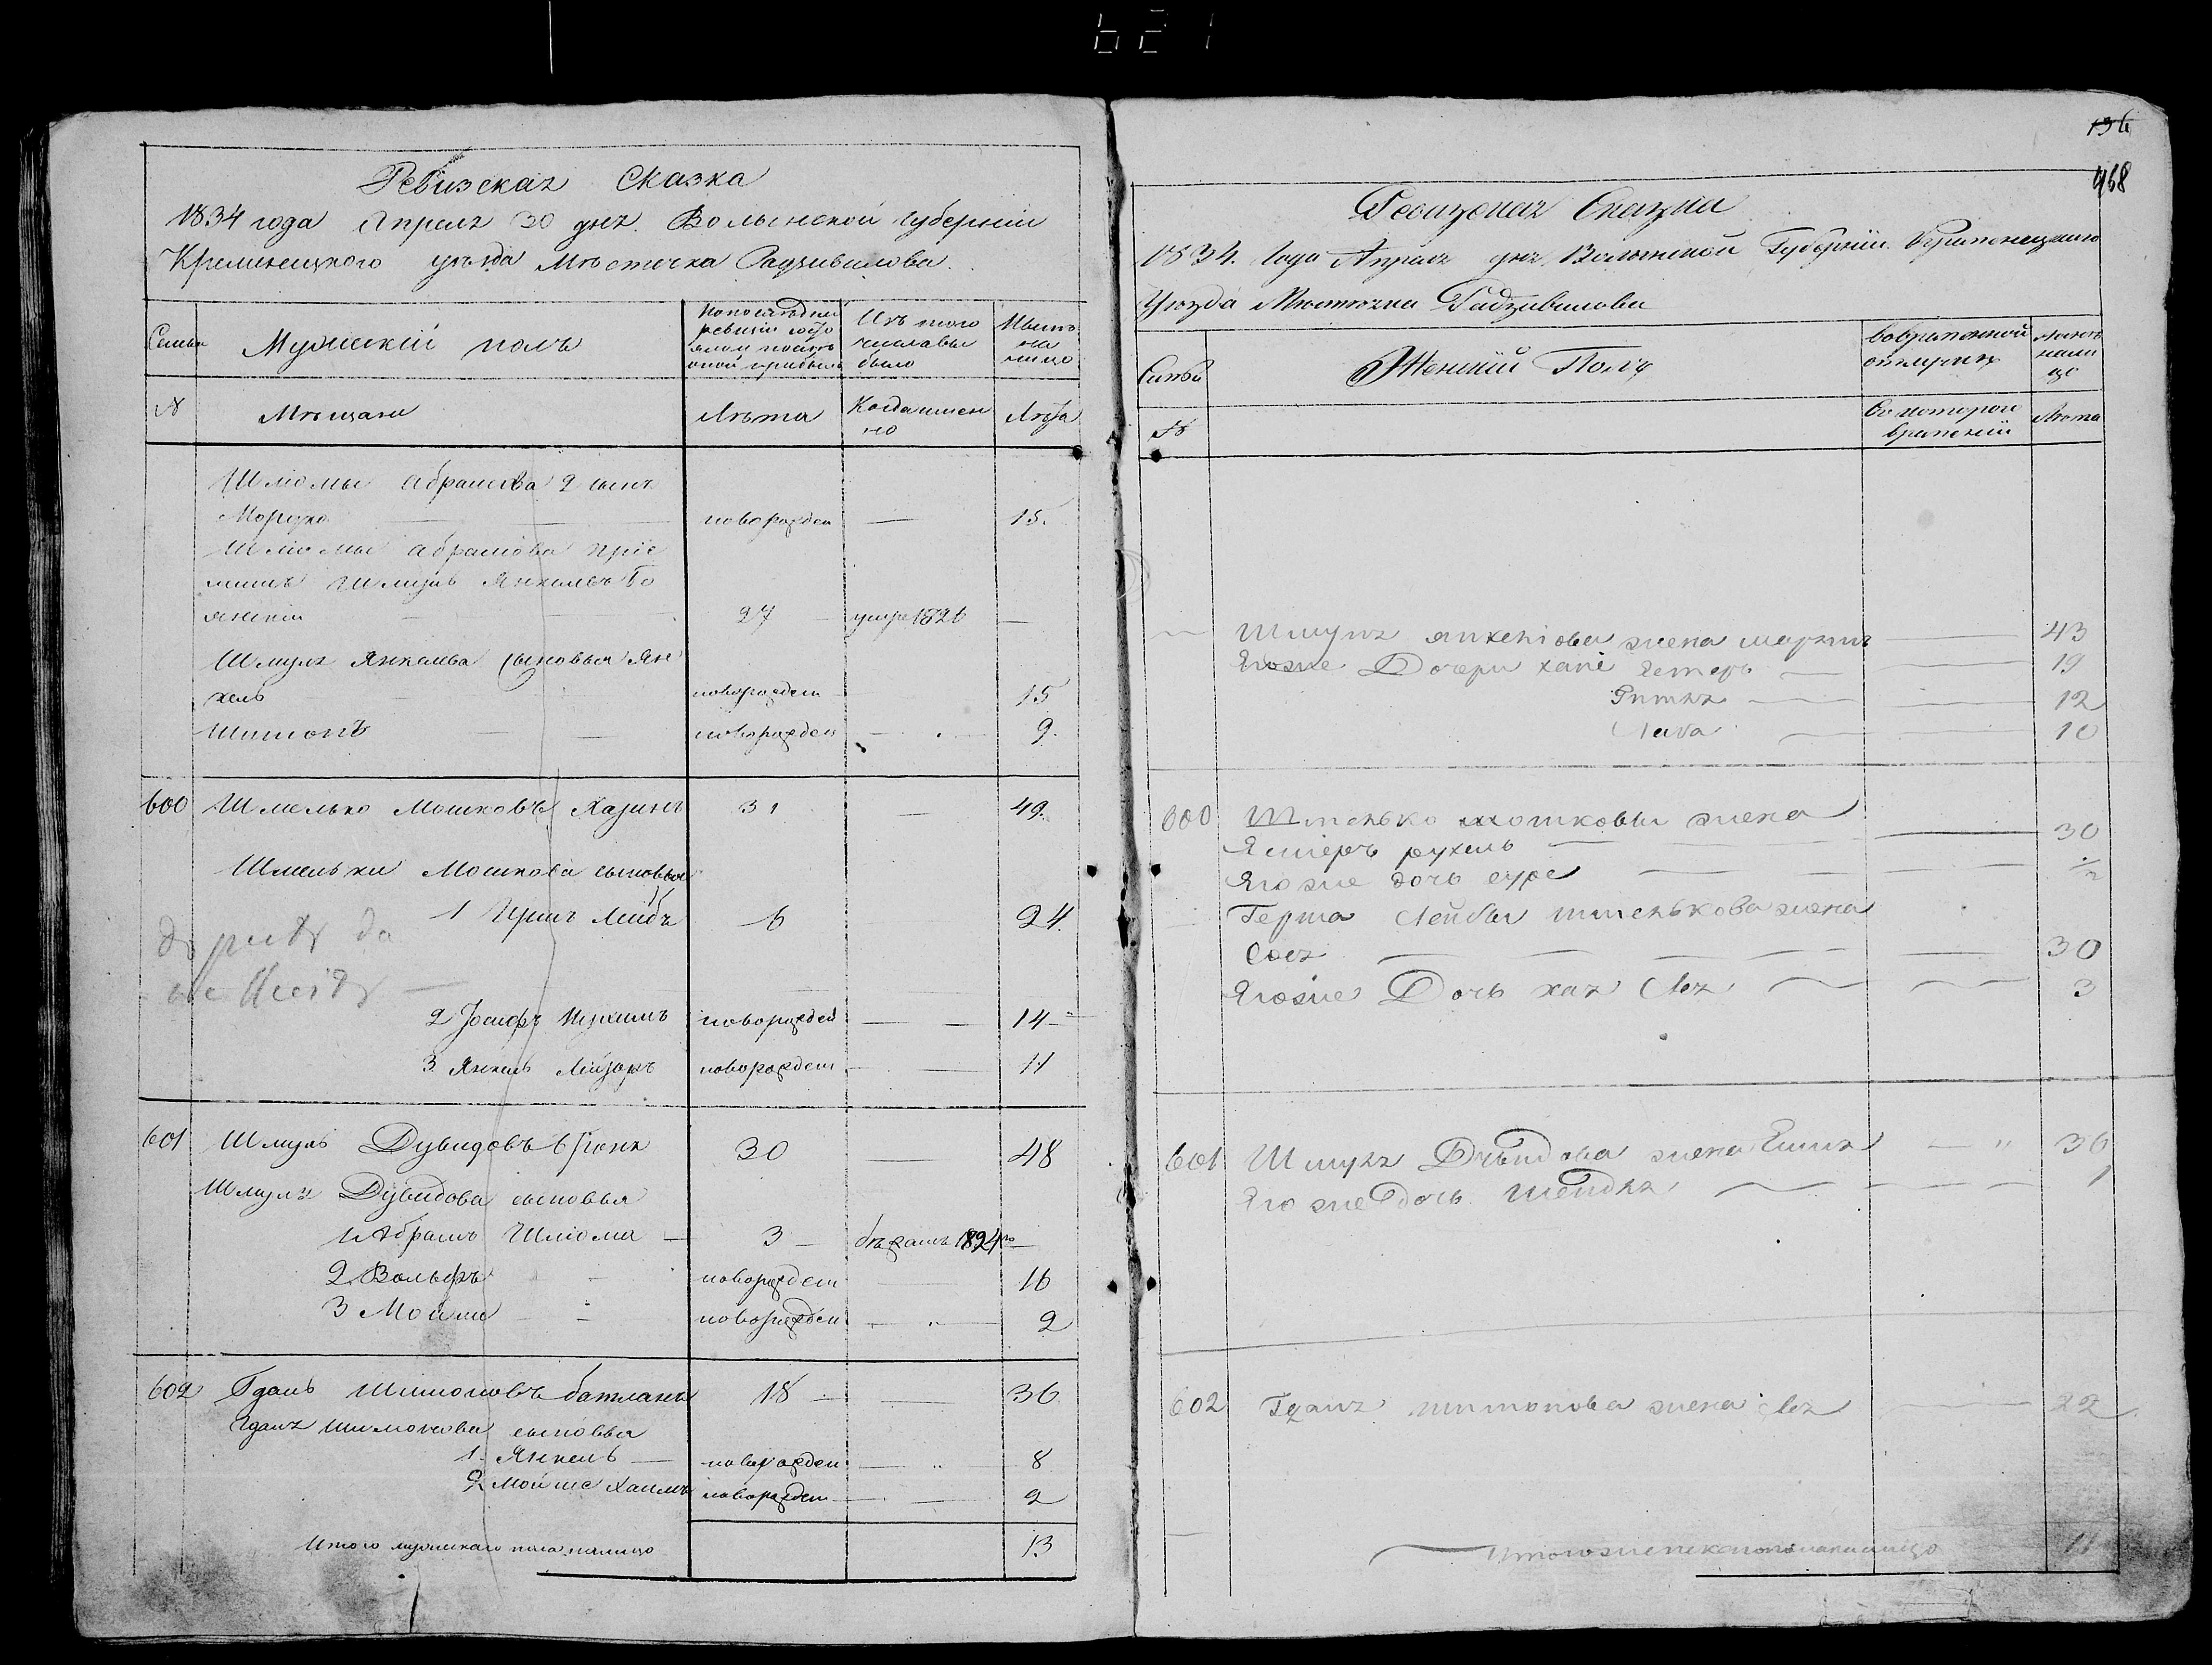 621
Ревизская Сказка
1834 года Апреля 30 дня Волынской губернии
Кременецкого уезда Местечка Радзивилова
Семьи
Мужеский полъ
По последней ревизии состояло и после оной прибыло
Изъ того числа выбыло
Ныне на лицо
№
Мещане
Лета
Когда имен
но
Лета
Шліомы Абрамова 2 сынъ
Мордко новорожден 15.
Шліомы Абрамова пріе
мышъ Шмуль Янкелевъ
27 умре 1826
Шмуля Янкелева сыновья Ян
кель новорожден 15
Шимонъ новорожден 9.
600 Шмелько Мошковъ Хазинъ 31 49.
Шмельки Мошкова сыновья
1 Гершъ Лейбъ 6 24.
2 Іосифъ новорожден 14
3 Янкель Лейзоръ новорожден 11
601 Шмуль Дувидовъ 30 48
Шмуля Дувидова сыновья
1 Абрамъ Шліома 3 1824
2 Вольфъ новорожден 16
3 Мойше новорожден 2
602 Гдаль Шимоновъ батланъ 18 36
Гдаля Шимонова сыновья
1. Янкель новорожден 8
2 Мойше Хаимъ новорожден 2
Итого мужескаго пола налицо 13
136
468
Ревизская Сказка
1834. Года Апреля дня Волынской Губерніи Кременецкаго
Уезда Местечка Радзивилова
Семьи
Женскій Полъ
Во временной отлучке
Ныне нали
цо
№
Съ котораго времени
Лета
Шмуля Янкеліова жена 43
Его же Дочери хане естеръ 19
Ритля 12
Хава 10
600 Шмелько мошковы жена
Естеръ рухель 30
Его же дочь суре ½
Герша Лейбы шмелькова жена
Сося 30
Его же Дочь хая Лея 3
601 Шмуля Дувидова жена 36
Его же дочь Шейндля 1
602 Гдаля шимонова жена Лея 22
Итого женского пола налицо 11